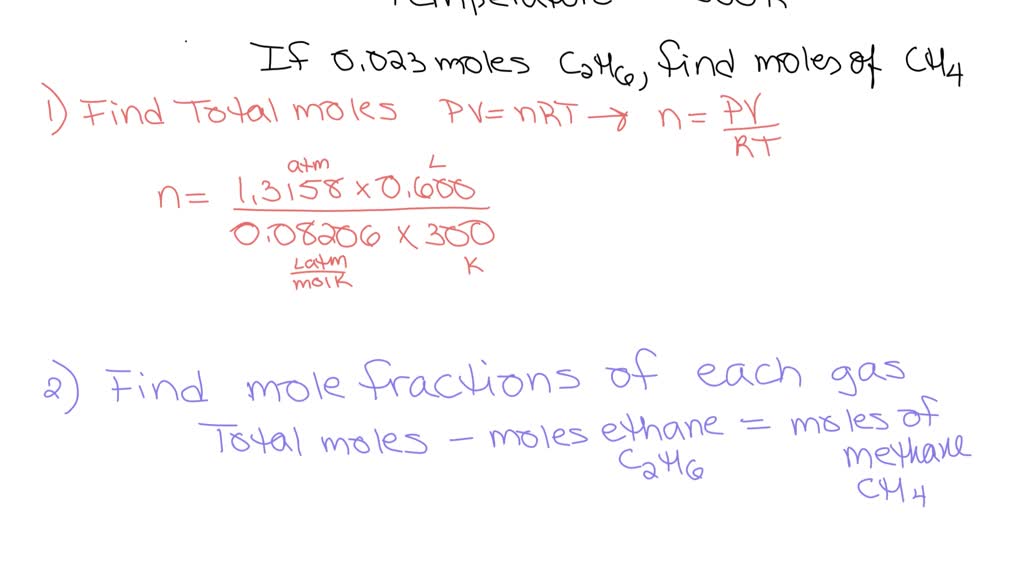 If 0.023 moles C2H6, find moles of CH4
1) Find Total moles PV=nRT → n= PV/RT
atm L
n= 1.3158 x 0.600
0.08206 x 300
Latm/molK K
2) Find mole fractions of each gas
Total moles – moles ethane = moles of
C2H6 methane
CH4